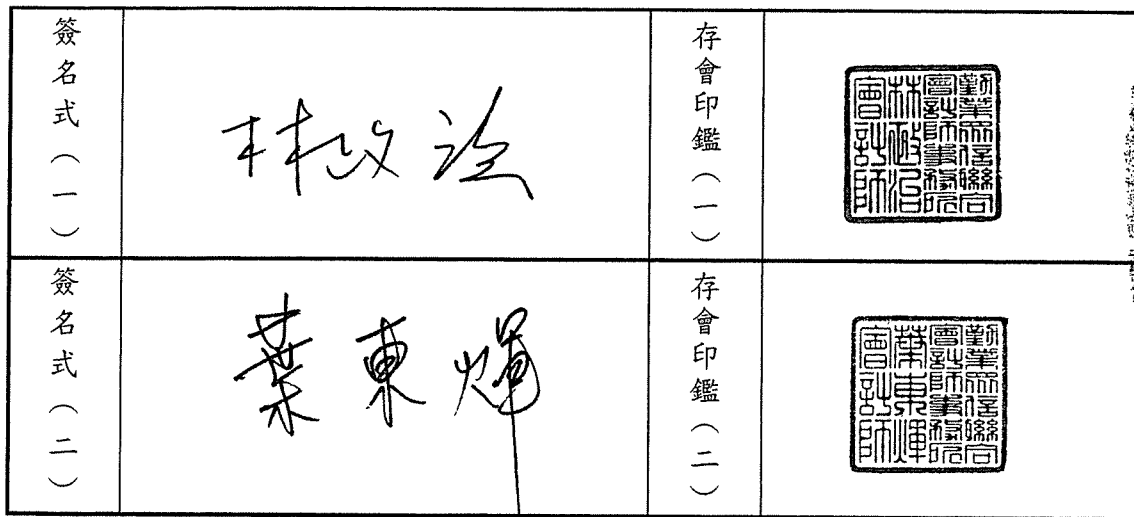 簽名式（一）
林政治
存會印鑑（一）
勤業眾信聯合
會計師事務所
林政治
會計師
簽名式（二）
葉東煇
存會印鑑（二）
勤業眾信聯合
會計師事務所
葉東煇
會計師